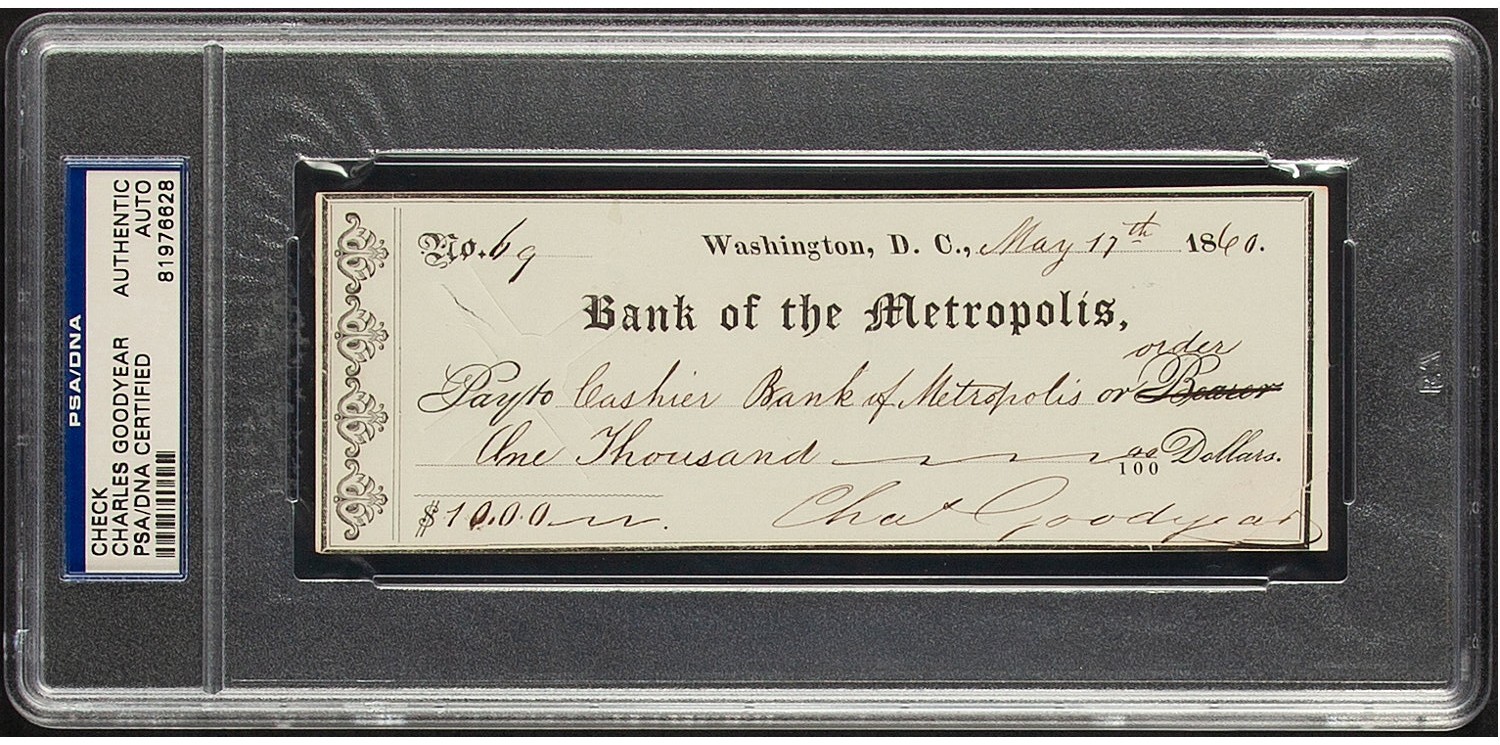 PSA/DNA
CHECK AUTHENTIC
CHARLES GOODYEAR AUTO
PSA/DNA CERTIFIED 81976628
No. 69 Washington, D. C., May 17th 1860.
Bank of the Metropolis,
order
Pay to Cashier Bank of Metropolis or Bearer
One Thousand 00/100 Dollars.
$1000 Chas Goodyear